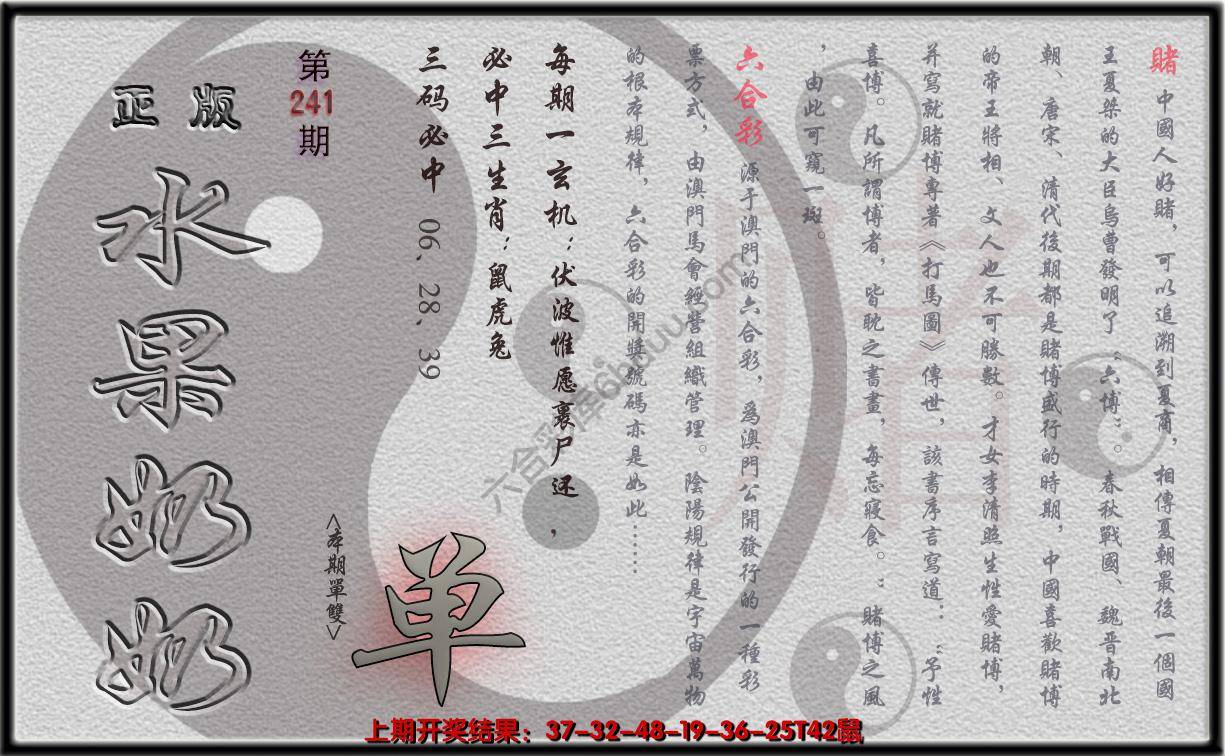 賭 中國人好賭，可以追溯到夏商，相傳夏朝最後一個國
王夏桀的大臣烏曹發明了“六博”。春秋戰國、魏晋南北
朝、唐宋、清代後期都是賭博盛行的時期，中國喜歡賭博
的帝王將相、文人也不可勝數。才女李清照生性愛賭博，
并寫就賭博專著《打馬圖》傳世，該書序言寫道：“予性
喜博。凡所謂博者，皆耽之書晝，每忘寢食。”賭博之風
，由此可窺一斑。
六合彩 源于澳門的六合彩，爲澳門公開發行的一種彩
票方式，由澳門馬會經營組織管理。陰陽規律是宇宙萬物
的根本規律，六合彩的開獎號碼亦是如此……
每期一玄机：伏波惟愿裹尸还，
必中三生肖：鼠虎兔
三码必中 06、28、39
第
241
期
正版
水果奶奶
<本期單雙>
单
六合彩库6huuu.com
上期开奖结果：37-32-48-19-36-25T42鼠